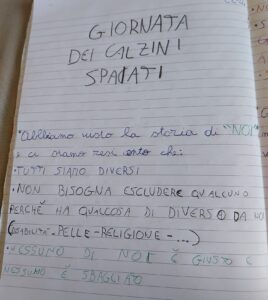 GIORNATA
DEI CALZINI
SPAIATI
"Abbiamo visto la storia di "NOI"
e ci siamo resi conto che:
• TUTTI SIAMO DIVERSI
• NON BISOGNA ESCLUDERE QUALCUNO
PERCHÉ HA QUALCOSA DI DIVERSO DA NOI
PELLE - RELIGIONE - ...)
• NESSUNO DI NOI È GIUSTO E
NESSUNO È SBAGLIATO